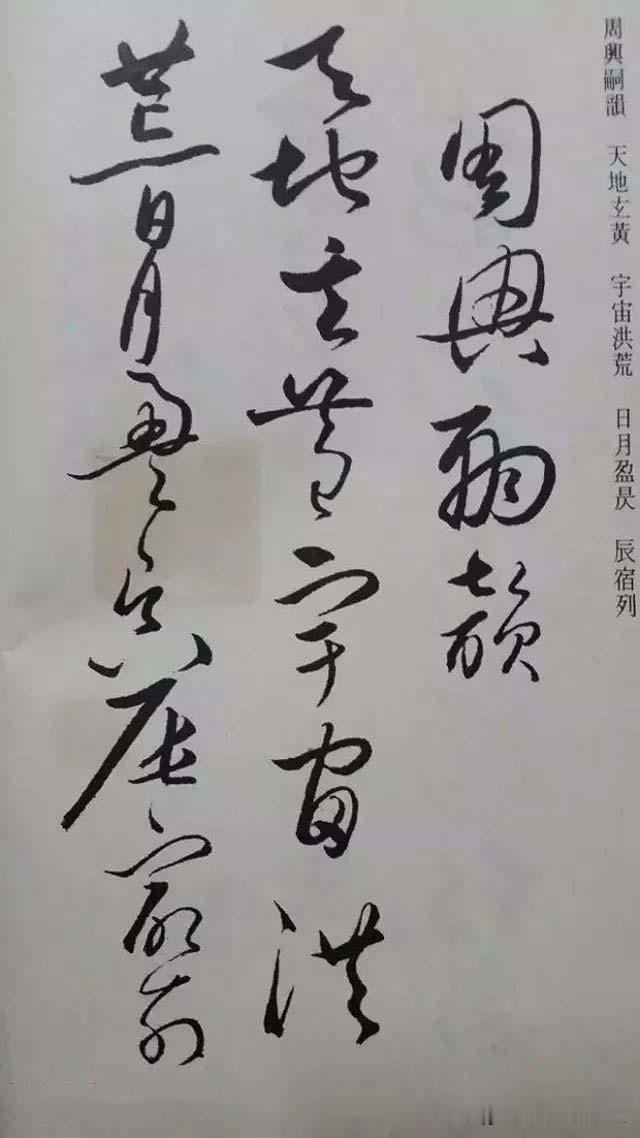 周興嗣韻　天地𤣥黃　宇宙洪荒　日月盈昃　辰宿列
周興嗣韻
天地𤣥黃宇宙洪
荒日月盈昃辰宿列